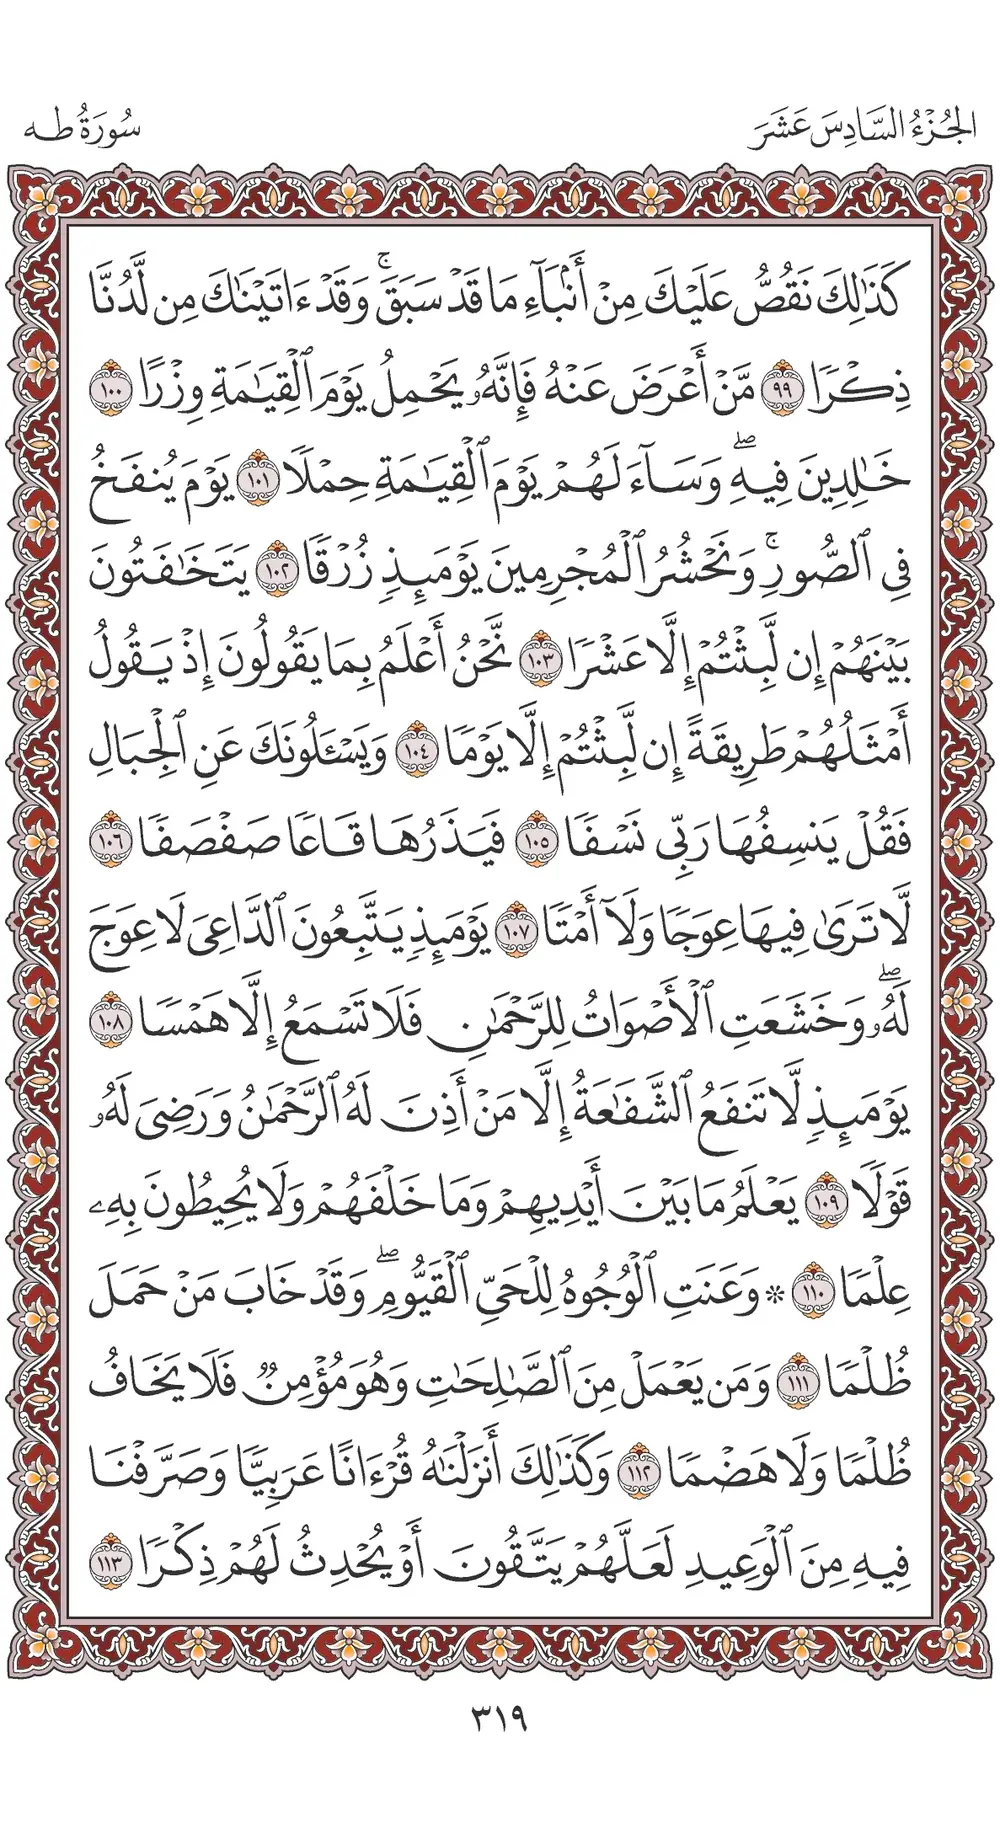 الجُزْءُ السَّادِسَ عَشَرَ
سُورَةُ طه
كَذَٰلِكَ نَقُصُّ عَلَيْكَ مِنْ أَنۢبَآءِ مَا قَدْ سَبَقَۚ وَقَدْ ءَاتَيْنَٰكَ مِن لَّدُنَّا
ذِكْرًا ٩٩ مَّنْ أَعْرَضَ عَنْهُ فَإِنَّهُۥ يَحْمِلُ يَوْمَ ٱلْقِيَٰمَةِ وِزْرًا ١٠٠
خَٰلِدِينَ فِيهِۖ وَسَآءَ لَهُمْ يَوْمَ ٱلْقِيَٰمَةِ حِمْلًا ١٠١ يَوْمَ يُنفَخُ
فِي ٱلصُّورِۚ وَنَحْشُرُ ٱلْمُجْرِمِينَ يَوْمَئِذٍ زُرْقًا ١٠٢ يَتَخَٰفَتُونَ
بَيْنَهُمْ إِن لَّبِثْتُمْ إِلَّا عَشْرًا ١٠٣ نَّحْنُ أَعْلَمُ بِمَا يَقُولُونَ إِذْ يَقُولُ
أَمْثَلُهُمْ طَرِيقَةً إِن لَّبِثْتُمْ إِلَّا يَوْمًا ١٠٤ وَيَسْـَٔلُونَكَ عَنِ ٱلْجِبَالِ
فَقُلْ يَنسِفُهَا رَبِّي نَسْفًا ١٠٥ فَيَذَرُهَا قَاعًا صَفْصَفًا ١٠٦
لَّا تَرَىٰ فِيهَا عِوَجًا وَلَآ أَمْتًا ١٠٧ يَوْمَئِذٍ يَتَّبِعُونَ ٱلدَّاعِيَ لَا عِوَجَ
لَهُۥۖ وَخَشَعَتِ ٱلْأَصْوَاتُ لِلرَّحْمَٰنِ فَلَا تَسْمَعُ إِلَّا هَمْسًا ١٠٨
يَوْمَئِذٍ لَّا تَنفَعُ ٱلشَّفَٰعَةُ إِلَّا مَنْ أَذِنَ لَهُ ٱلرَّحْمَٰنُ وَرَضِيَ لَهُۥ
قَوْلًا ١٠٩ يَعْلَمُ مَا بَيْنَ أَيْدِيهِمْ وَمَا خَلْفَهُمْ وَلَا يُحِيطُونَ بِهِۦ
عِلْمًا ١١٠ * وَعَنَتِ ٱلْوُجُوهُ لِلْحَيِّ ٱلْقَيُّومِۖ وَقَدْ خَابَ مَنْ حَمَلَ
ظُلْمًا ١١١ وَمَن يَعْمَلْ مِنَ ٱلصَّٰلِحَٰتِ وَهُوَ مُؤْمِنٌ فَلَا يَخَافُ
ظُلْمًا وَلَا هَضْمًا ١١٢ وَكَذَٰلِكَ أَنزَلْنَٰهُ قُرْءَانًا عَرَبِيًّا وَصَرَّفْنَا
فِيهِ مِنَ ٱلْوَعِيدِ لَعَلَّهُمْ يَتَّقُونَ أَوْ يُحْدِثُ لَهُمْ ذِكْرًا ١١٣
٣١٩